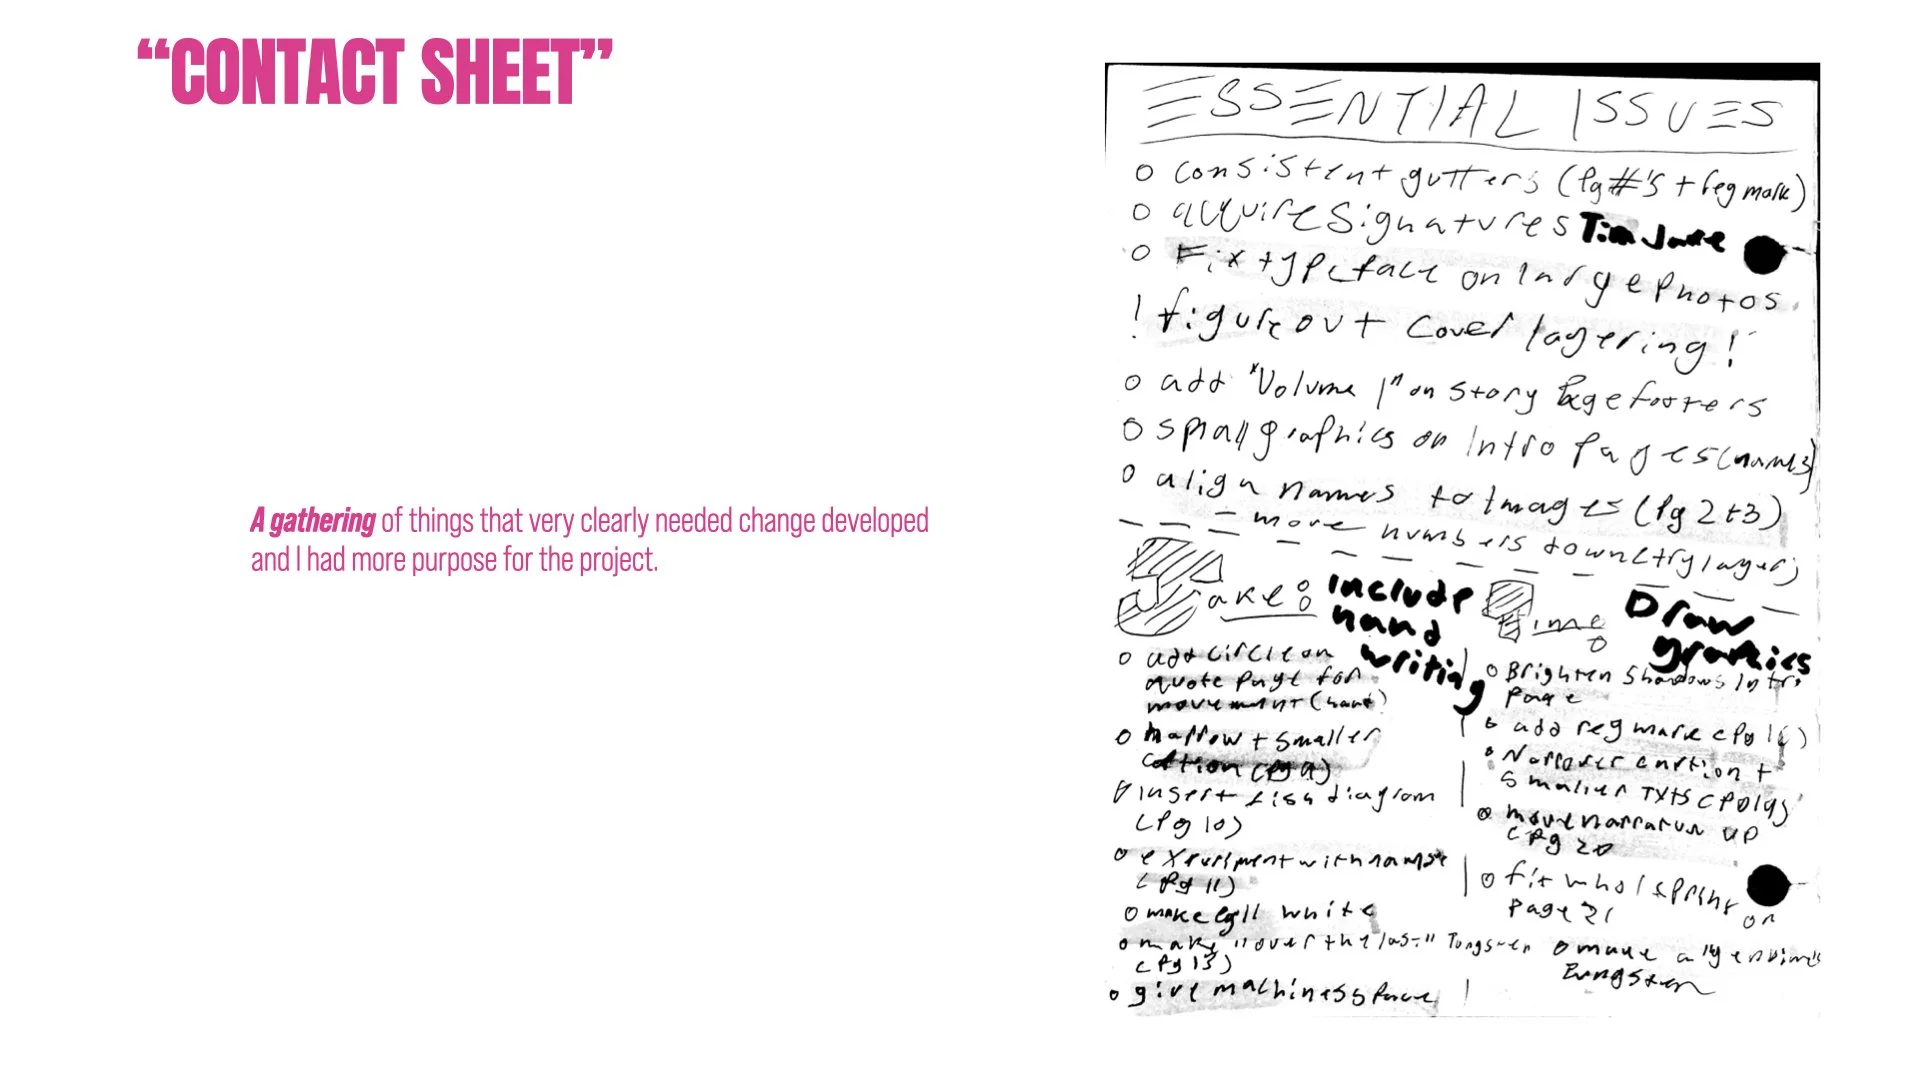 “CONTACT SHEET”
A gathering of things that very clearly needed change developed
and I had more purpose for the project.
ESSENTIAL ISSUES
consistent gutters (pg #'s + reg mark)
acquire signatures Tim Jake
Fix typeface on large photos
! figure out cover layering!
add "Volume 1" on story page footers
small graphics on Intro Pages (names)
align names to Images (pg 2+3)
- move numbers down (try layer)
Jake:
include
hand
writing
add circle on
quote page for
movement (hand)
narrow + smaller
(pg 9)
insert fish diagram
(pg 10)
experiment with name
(pg 11)
make pg 11 white
make "over the last" Tungsten
(pg 13)
give machines space
Time
Draw
graphics
Brighten shadows Intro
page
add reg mark (pg 16)
Narrower caption +
smaller txts (pg 19)
move narration up
(pg 20
fit whole spring on
page 21
make a
Tungsten